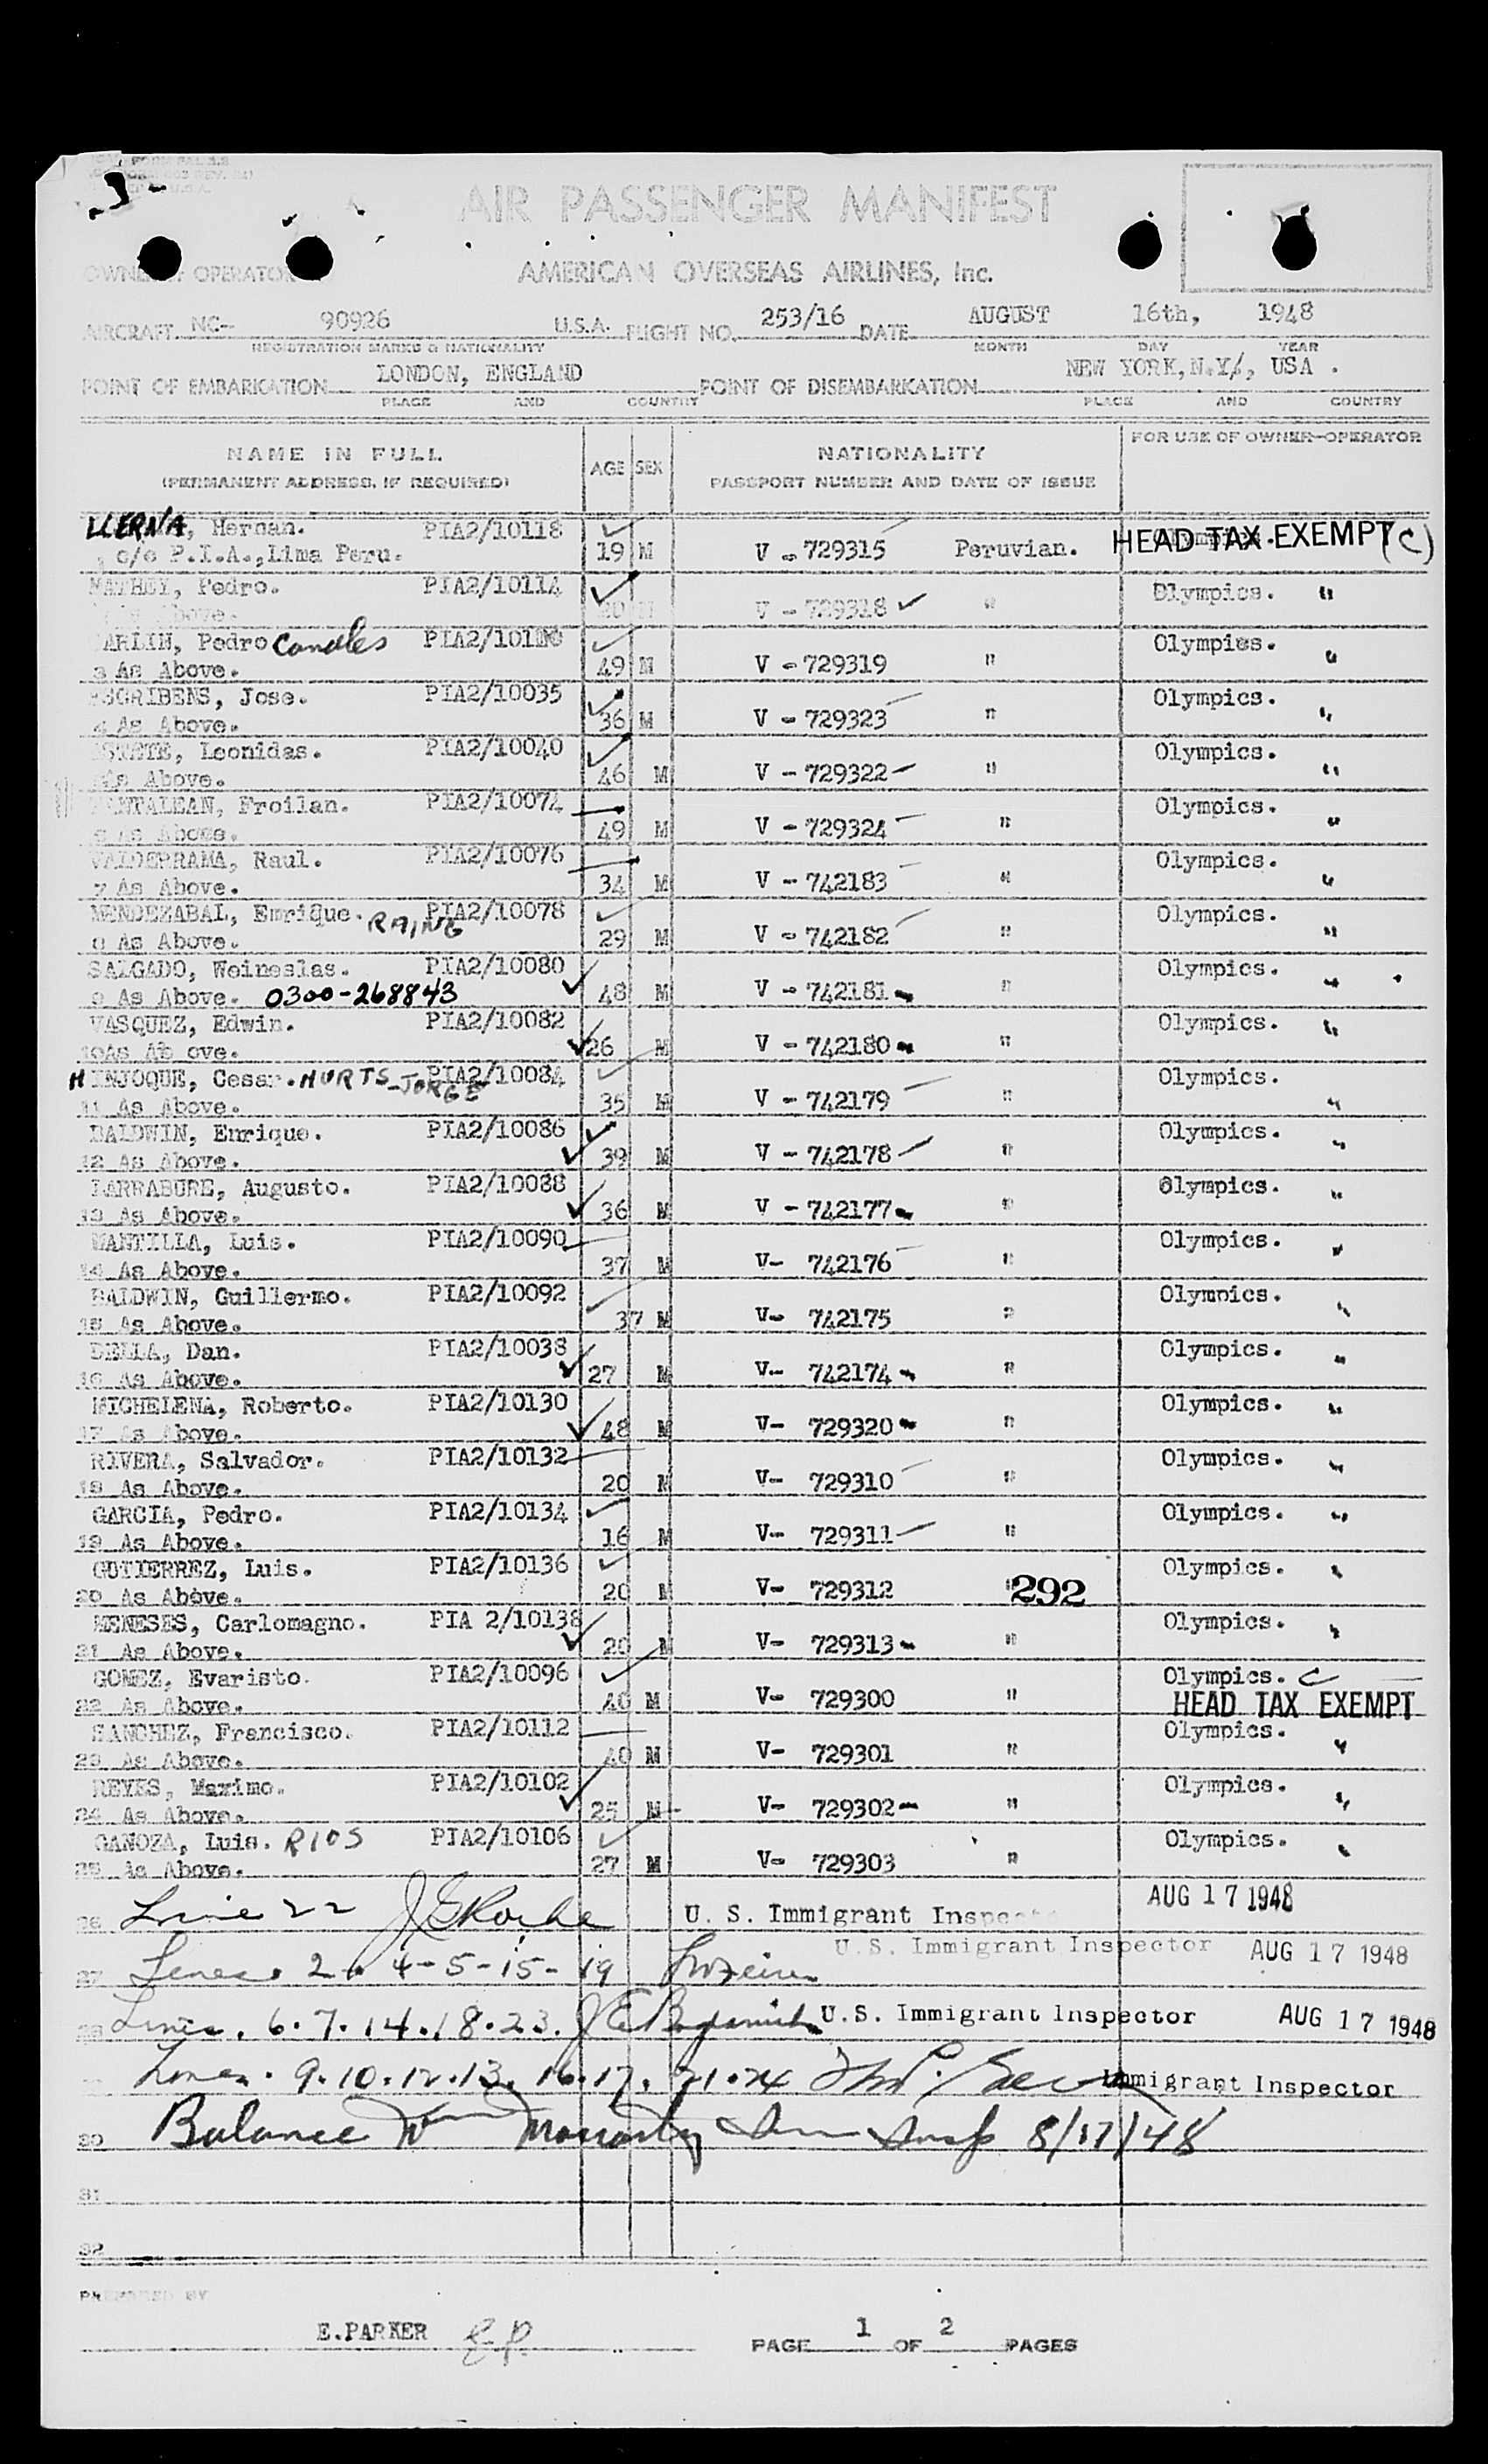 AIR PASSENGER MANIFEST
OWNER OPERATOR
AMERICAN OVERSEAS AIRLINES, Inc.
AIRCRAFT NC- 90926 U.S.A. FLIGHT NO. 253/16 DATE AUGUST 16th, 1948
REGISTRATION MARKS & NATIONALITY MONTH DAY YEAR
POINT OF EMBARKATION LONDON, ENGLAND POINT OF DISEMBARKATION NEW YORK, N.Y/, USA .
PLACE AND COUNTRY PLACE AND COUNTRY
NAME IN FULL AGE SEX NATIONALITY FOR USE OF OWNER-OPERATOR
(PERMANENT ADDRESS, IF REQUIRED) PASSPORT NUMBER AND DATE OF ISSUE
LLERNA, Hernan. PIA2/10118
c/o P.I.A., Lima Peru. 19 M V - 729315 Peruvian. HEAD TAX EXEMPT (C)
MATHEY, Pedro. PIA2/10114 Olympics. "
Above. V - 729318 "
ARLIN, Pedro Canales Olympics. "
3 As Above. 49 M V - 729319 "
ESCRIBENS, Jose. PIA2/10035 Olympics. "
4 As Above. 36 M V - 729323 "
Leonidas. PIA2/10040 Olympics. "
As Above. 46 M V - 729322 "
PANTALEAN, Froilan. PIA2/10074 Olympics. "
6 As Above. 49 M V - 729324 "
VALDERRAMA, Raul. PIA2/10076 Olympics. "
7 As Above. 34 M V - 742183 "
MENDEZABAL, Enrique. RAING PIA2/10078 Olympics. "
8 As Above. 29 M V - 742182 "
SALGADO, Weineslas. PIA2/10080 Olympics. "
9 As Above. 0300-268843 48 M V - 742181 "
VASQUEZ, Edwin. PIA2/10082 Olympics. "
10 As Ab ove. 26 M V - 742180 "
HINJOQUE, Cesar. HURTS-JORGE PIA2/10084 Olympics. "
11 As Above. 35 M V - 742179 "
BALDWIN, Enrique. PIA2/10086 Olympics. "
12 As Above. 39 M V - 742178 "
LARRABURE, Augusto. PIA2/10088 Olympics. "
13 As Above. 36 M V - 742177 "
MANTILLA, Luis. PIA2/10090 Olympics. "
14 As Above. 37 M V- 742176 "
BALDWIN, Guillermo. PIA2/10092 Olympics. "
15 As Above. 37 M V- 742175 "
DELLA, Dan. PIA2/10038 Olympics. "
16 As Above. 27 M V- 742174 "
MICHELENA, Roberto. PIA2/10130 Olympics. "
17 As Above. 48 M V- 729320 "
RIVERA, Salvador. PIA2/10132 Olympics. "
18 As Above. 20 M V- 729310 "
GARCIA, Pedro. PIA2/10134 Olympics. "
19 As Above. 16 M V- 729311 "
GUTIERREZ, Luis. PIA2/10136 Olympics. "
20 As Above. 20 M V- 729312 " 292
MENESES, Carlomagno. PIA 2/10138 Olympics. "
21 As Above. 20 M V- 729313 "
GOMEZ, Evaristo. PIA2/10096 Olympics. C
22 As Above. 40 M V- 729300 " HEAD TAX EXEMPT
SANCHEZ, Francisco. PIA2/10112 Olympics. "
23 As Above. 40 M V- 729301 "
REYES, Maximo. PIA2/10102 Olympics. "
24 As Above. 25 M V- 729302 "
GANOZA, Luis. RIOS PIA2/10106 Olympics. "
25 As Above. 27 M V- 729303 "
26 Line 22 U. S. Immigrant Inspector AUG 17 1948
27 Lines 2-4-5-15-19 U.S. Immigrant Inspector AUG 17 1948
28 Lines. 6.7.14.18.23. U.S. Immigrant Inspector AUG 17 1948
Lines. 9.10.12.13. 16.17. 21.24 Immigrant Inspector
30 Balance W Moriarty Imm Insp 8/17/48
31
32
PREPARED BY
E.PARKER E.P.
PAGE 1 OF 2 PAGES